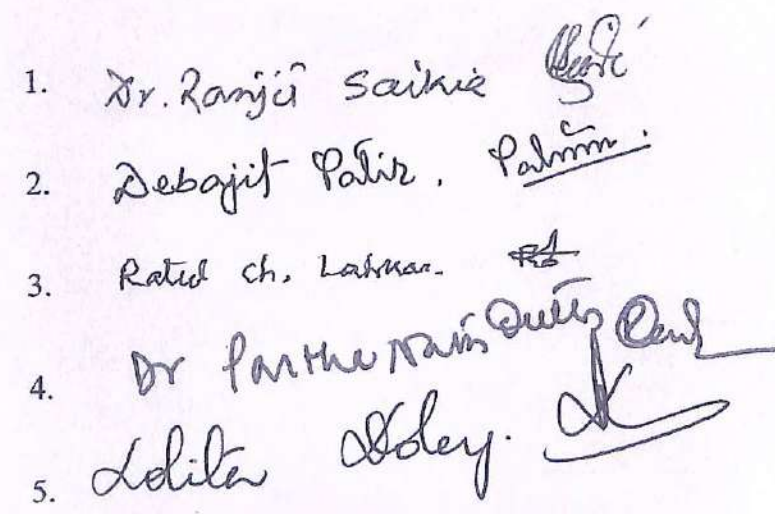 1. Dr. Ranjit Saikia
2. Debajit Patir.
3. Ratul ch. Lahkar.
4. Dr Partha Nath Dutta
5. Lolita Doley.